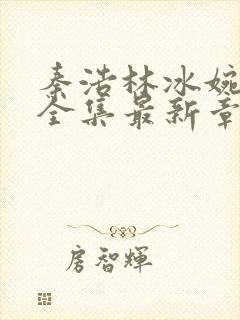 秦浩林冰婉
全集最新章
房智輝